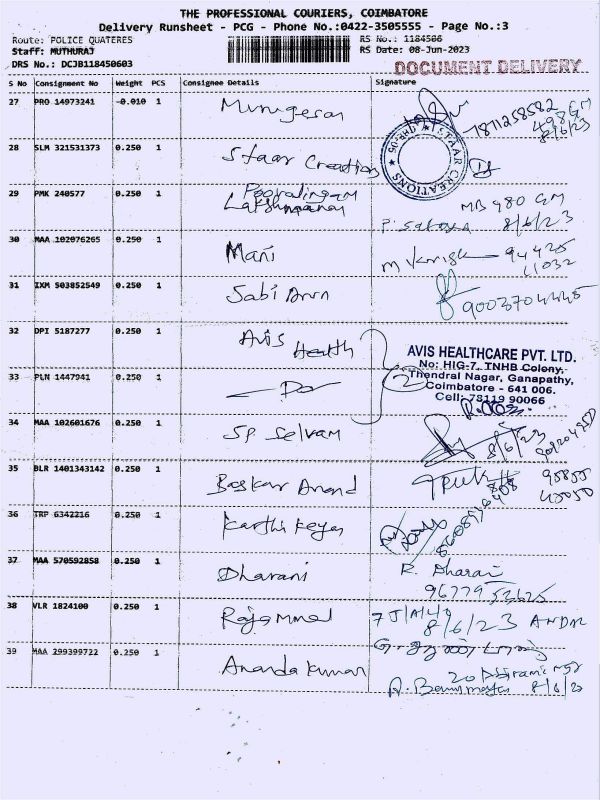 THE PROFESSIONAL COURIERS, COIMBATORE
Delivery Runsheet - PCG - Phone No.:0422-3505555 - Page No.:3
Route: POLICE QUATERES
RS No.: 1184506
Staff: MUTHURAJ
RS Date: 08-Jun-2023
DRS No.: DCJB118450603
DOCUMENT DELIVERY
S No Consignment No Weight PCS Consignee Details Signature
27 PRO 14973241 -0.010 1 Murugesan
7811258582
8/6/23
28 SLM 321531373 0.250 1 Staar Creations
STAAR CREATIONS
29 PMK 240577 0.250 1
8/6/23
30 MAA 102076265 0.250 1 Mani
31 IXM 503852549 0.250 1 Sabi Arun
9003704445
32 DPI 5187277 0.250 1 Avis Health
AVIS HEALTHCARE PVT. LTD.
No: HIG-7, TNHB Colony,
Thendral Nagar, Ganapathy,
Coimbatore - 641 006.
Cell: 78119 90066
33 PLN 1447941 0.250 1 — Do —
2
34 MAA 102601676 0.250 1 SP Selvam
8/6/23
35 BLR 1401343142 0.250 1 Baskar Anand
36 TRP 6342216 0.250 1 Karthikeyan
37 MAA 570592858 0.250 1 Dharani
38 VLR 1824100 0.250 1 Rajammal
8/6/23 ANDAL
39 MAA 299399722 0.250 1 Ananda Kumar